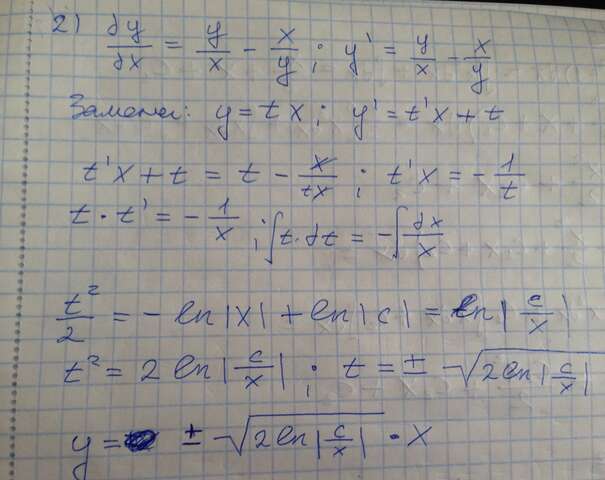 2) dy/dx = y/x - x/y ; y' = y/x - x/y
Замена: y = tx ; y' = t'x + t
t'x + t = t - x/tx ; t'x = - 1/t
t · t' = - 1/x ; ∫t·dt = -∫dx/x
t²/2 = - ln|x| + ln|c| = ln|c/x|
t² = 2 ln|c/x| ; t = ± √(2ln|c/x|)
y = ± √(2ln|c/x|) · x